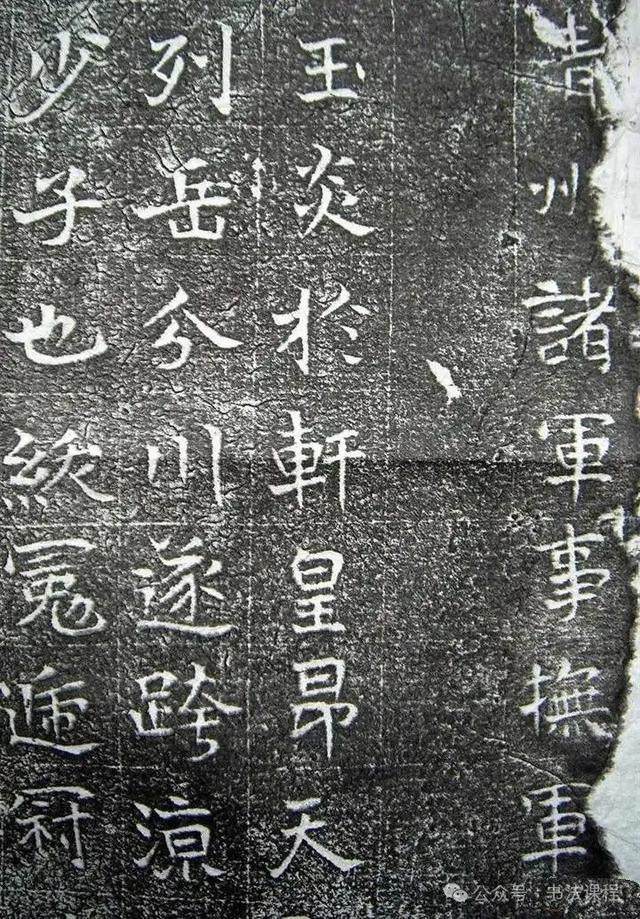 青州諸軍事撫軍
玉炎於軒皇昂天
列岳分川遂跨涼
少子也紱冕遞冠
公众号 · 书法课程